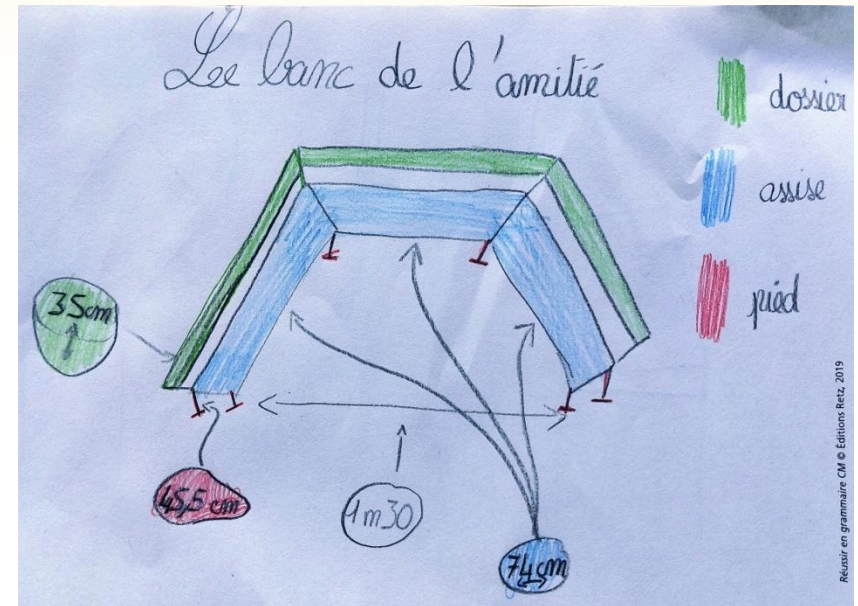 Le banc de l'amitié
dossier
assise
pied
35cm
45,5 cm
1m30
74cm
Réussir en grammaire CM © Éditions Retz, 2019